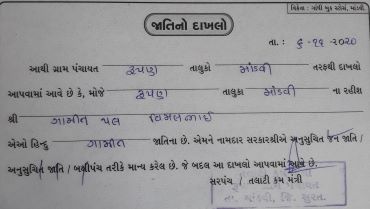 વિક્રેતા : ગાંધી બુક સ્ટોર્સ, માંડવી.
જાતિનો દાખલો
તા. : ૬-૧૧-૨૦૨૦
આથી ગ્રામ પંચાયત રૂપણ તાલુકો માંડવી તરફથી દાખલો
આપવામાં આવે છે કે, મોજે રૂપણ તાલુકા માંડવી ના રહીશ
શ્રી ગામીત પલ વિમલભાઈ
એઓ હિન્દુ ગામીત જાતિના છે. એમને નામદાર સરકારશ્રીએ અનુસુચિત જન જાતિ /
અનુસુચિત જાતિ / બક્ષીપંચ તરીકે માન્ય કરેલ છે. જે બદલ આ દાખલો આપવામાં આવે છે.
સરપંચ / તલાટી કમ મંત્રી
તા. માંડવી, જિ. સુરત.